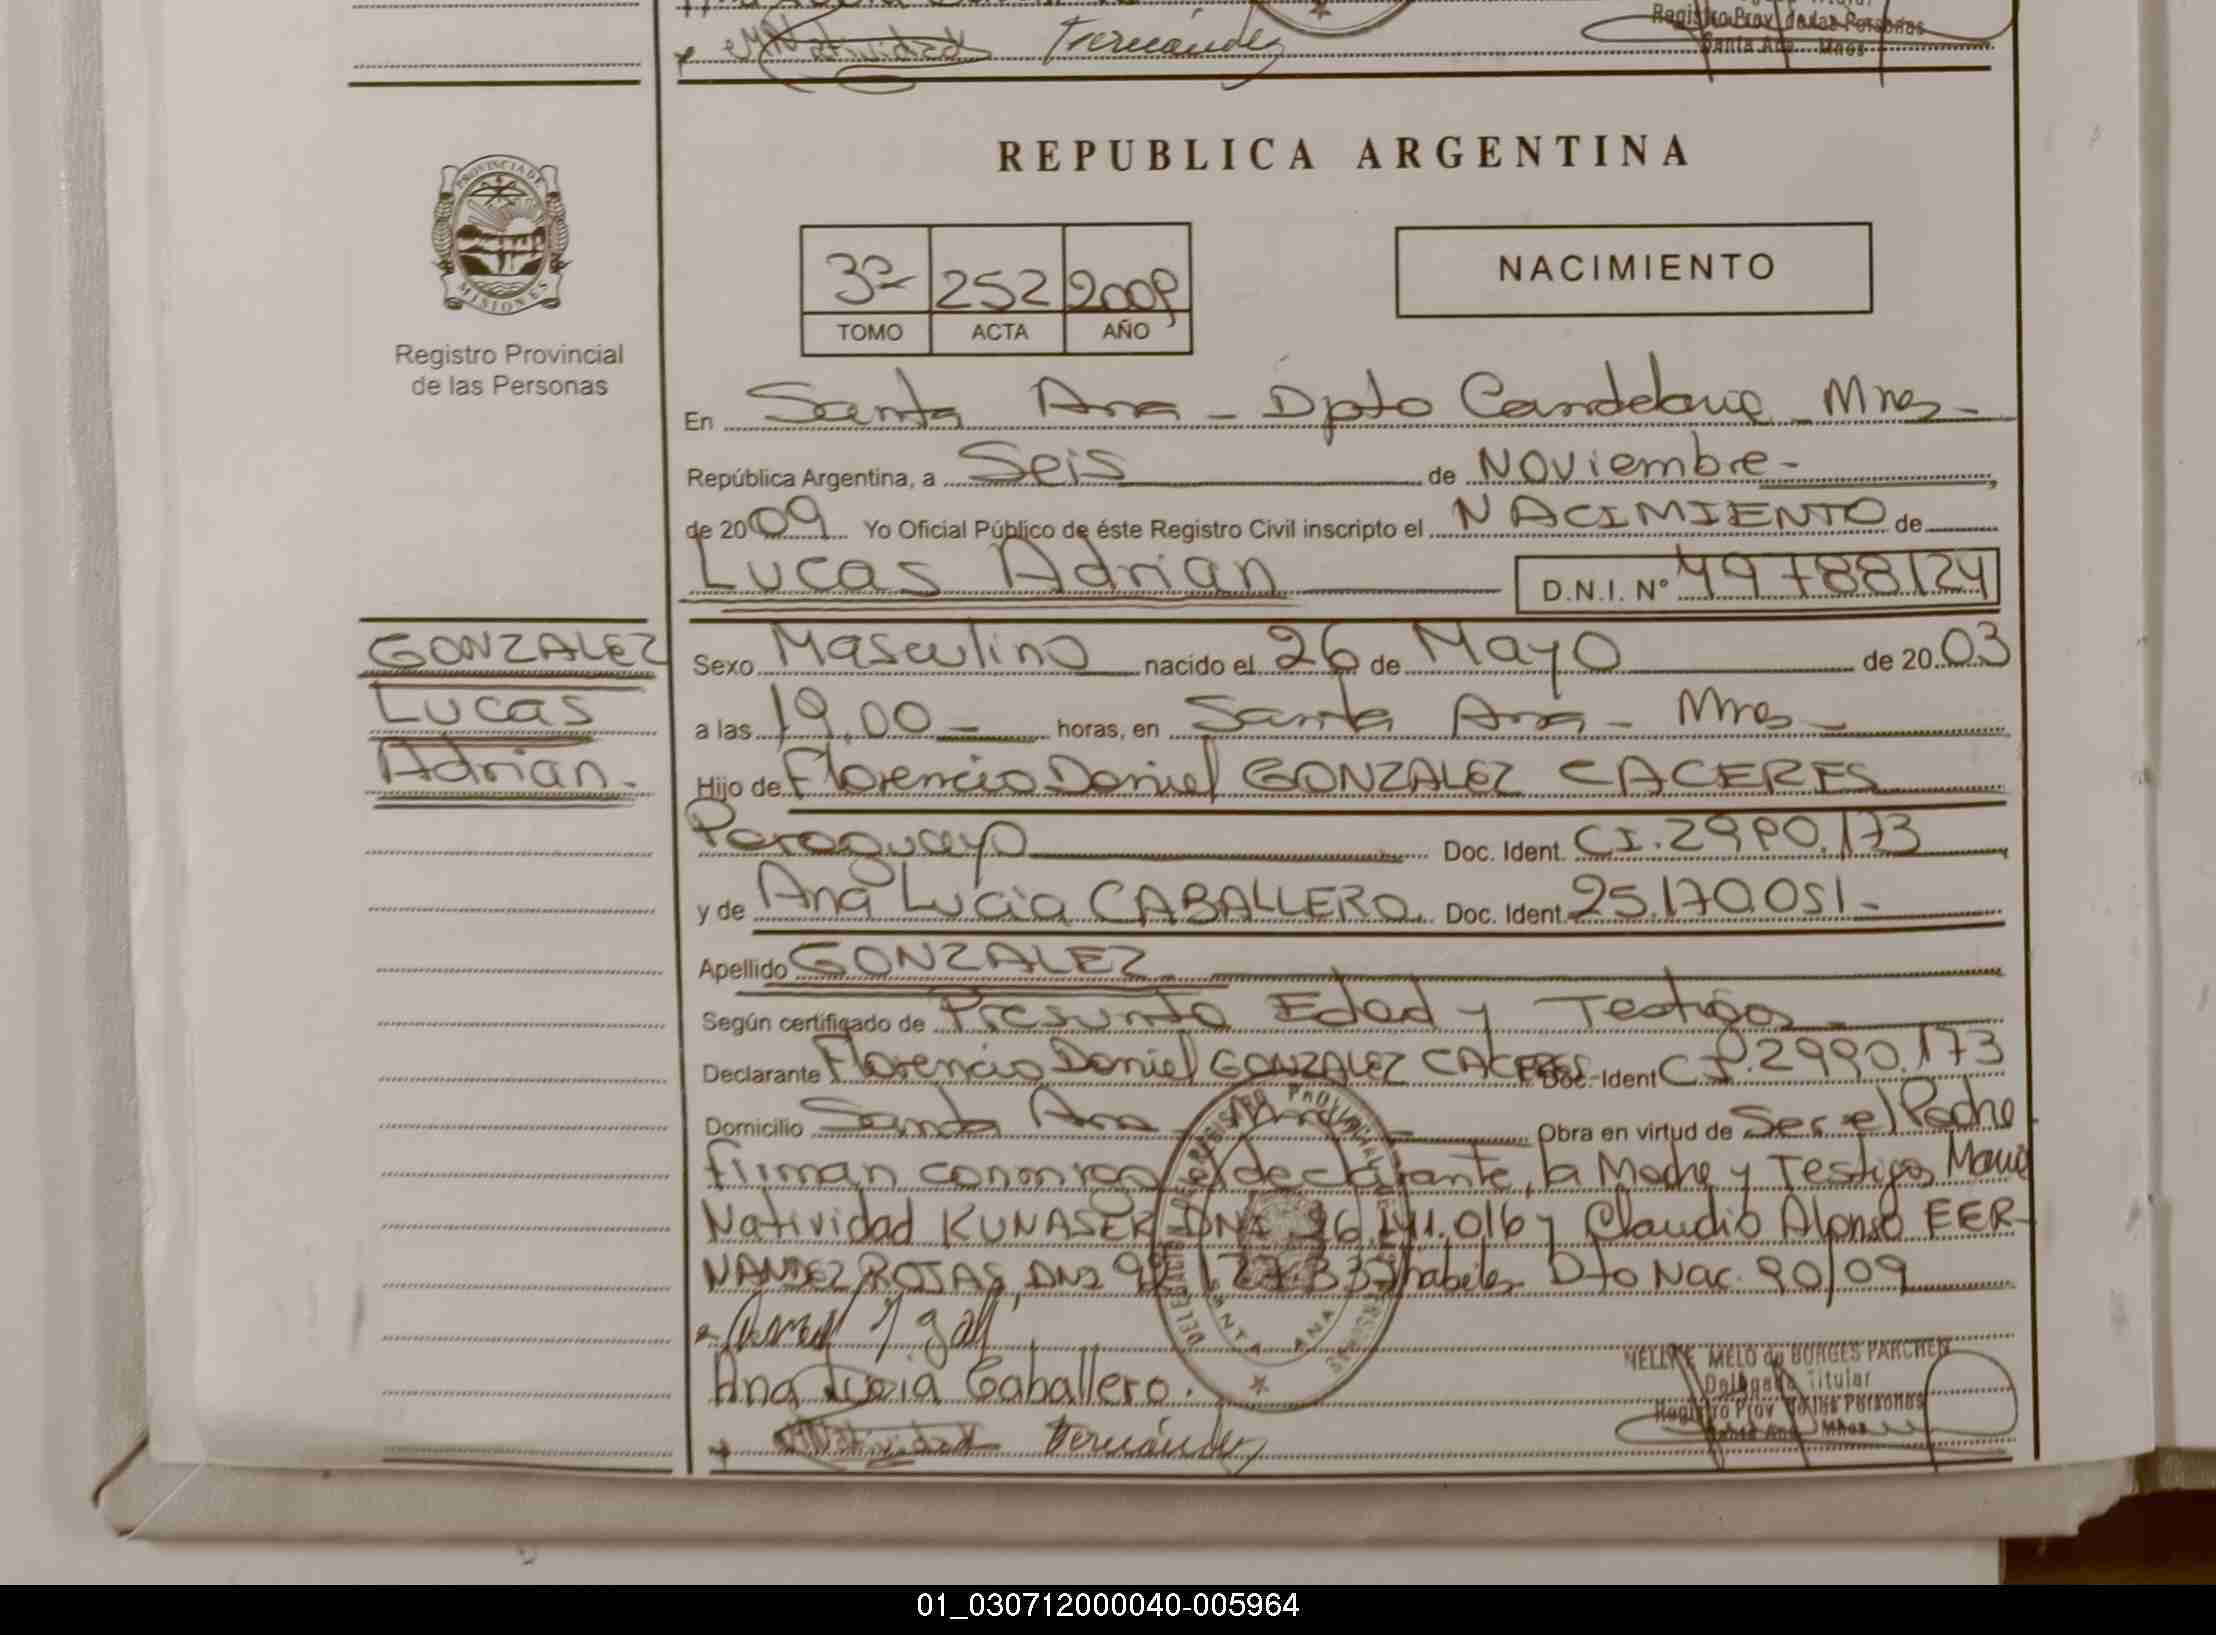 Natividad Fernández
Registro Prov. de las Personas
Santa Ana Mnes
PROVINCIA DE
MISIONES
Registro Provincial
de las Personas
REPUBLICA ARGENTINA
3º 252 2009
TOMO ACTA AÑO
NACIMIENTO
En Santa Ana - Dpto Candelaria - Mnes -
República Argentina, a Seis de Noviembre -
de 2009 Yo Oficial Público de éste Registro Civil inscripto el NACIMIENTO de
Lucas Adrian D.N.I. Nº 49788124
GONZALEZ
Lucas
Adrian -
Sexo Masculino nacido el 26 de Mayo de 2003
a las 19,00 - horas, en Santa Ana - Mnes -
Hijo de Florencio Daniel GONZALEZ CACERES
Paraguayo Doc. Ident. CI. 2990.173
y de Ana Lucia CABALLERO Doc. Ident. 25.170.051 -
Apellido GONZALEZ
Según certificado de Presunta Edad y Testigos -
Declarante Florencio Daniel GONZALEZ CACERES Doc. Ident CI. 2990.173
Domicilio Santa Ana - Mnes - Obra en virtud de Ser el Padre
firman conmigo el declarante, la Madre y Testigos Maria
Natividad KUNASER DNI 26.141.016 y Claudio Alonso FER-
NANDEZ ROJAS, DNI habiles Dto Nac. 90/09
Ana Lucia Caballero.
NELLY E. MELO de BORGES PARCHEN
Delegada Titular
Registro Prov de las Personas
Santa Ana Mnes
Fernández
REGISTRO PROVINCIAL
SANTA ANA
01_030712000040-005964